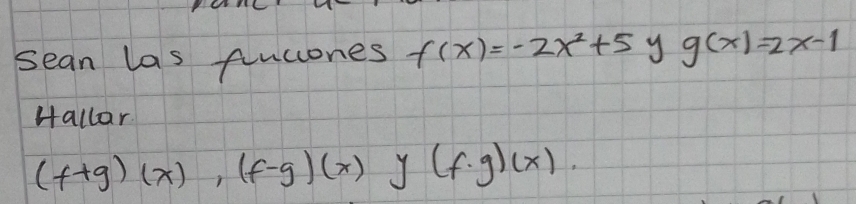 Sean las funciones f(x)=-2x²+5 y g(x)=2x-1
Hallar
(f+g)(x), (f-g)(x) y (f.g)(x).